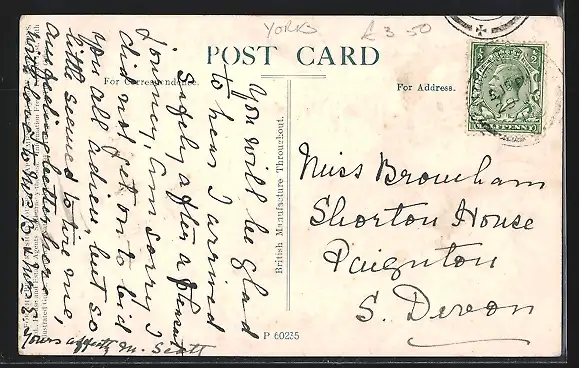 YORKS
£3.50
POST CARD
For Correspondence.
For Address.
HALFPENNY
British Manufacture Throughout.
You will be glad
to hear I arrived
safely after a pleasant
journey, am sorry I
did not get on to bid
you all adieu, but so
little seemed to tire me,
am feeling better here
with love to
Yours affectly M. Scott
Miss Bromham
Shorton House
Paignton
S. Devon
P 60235